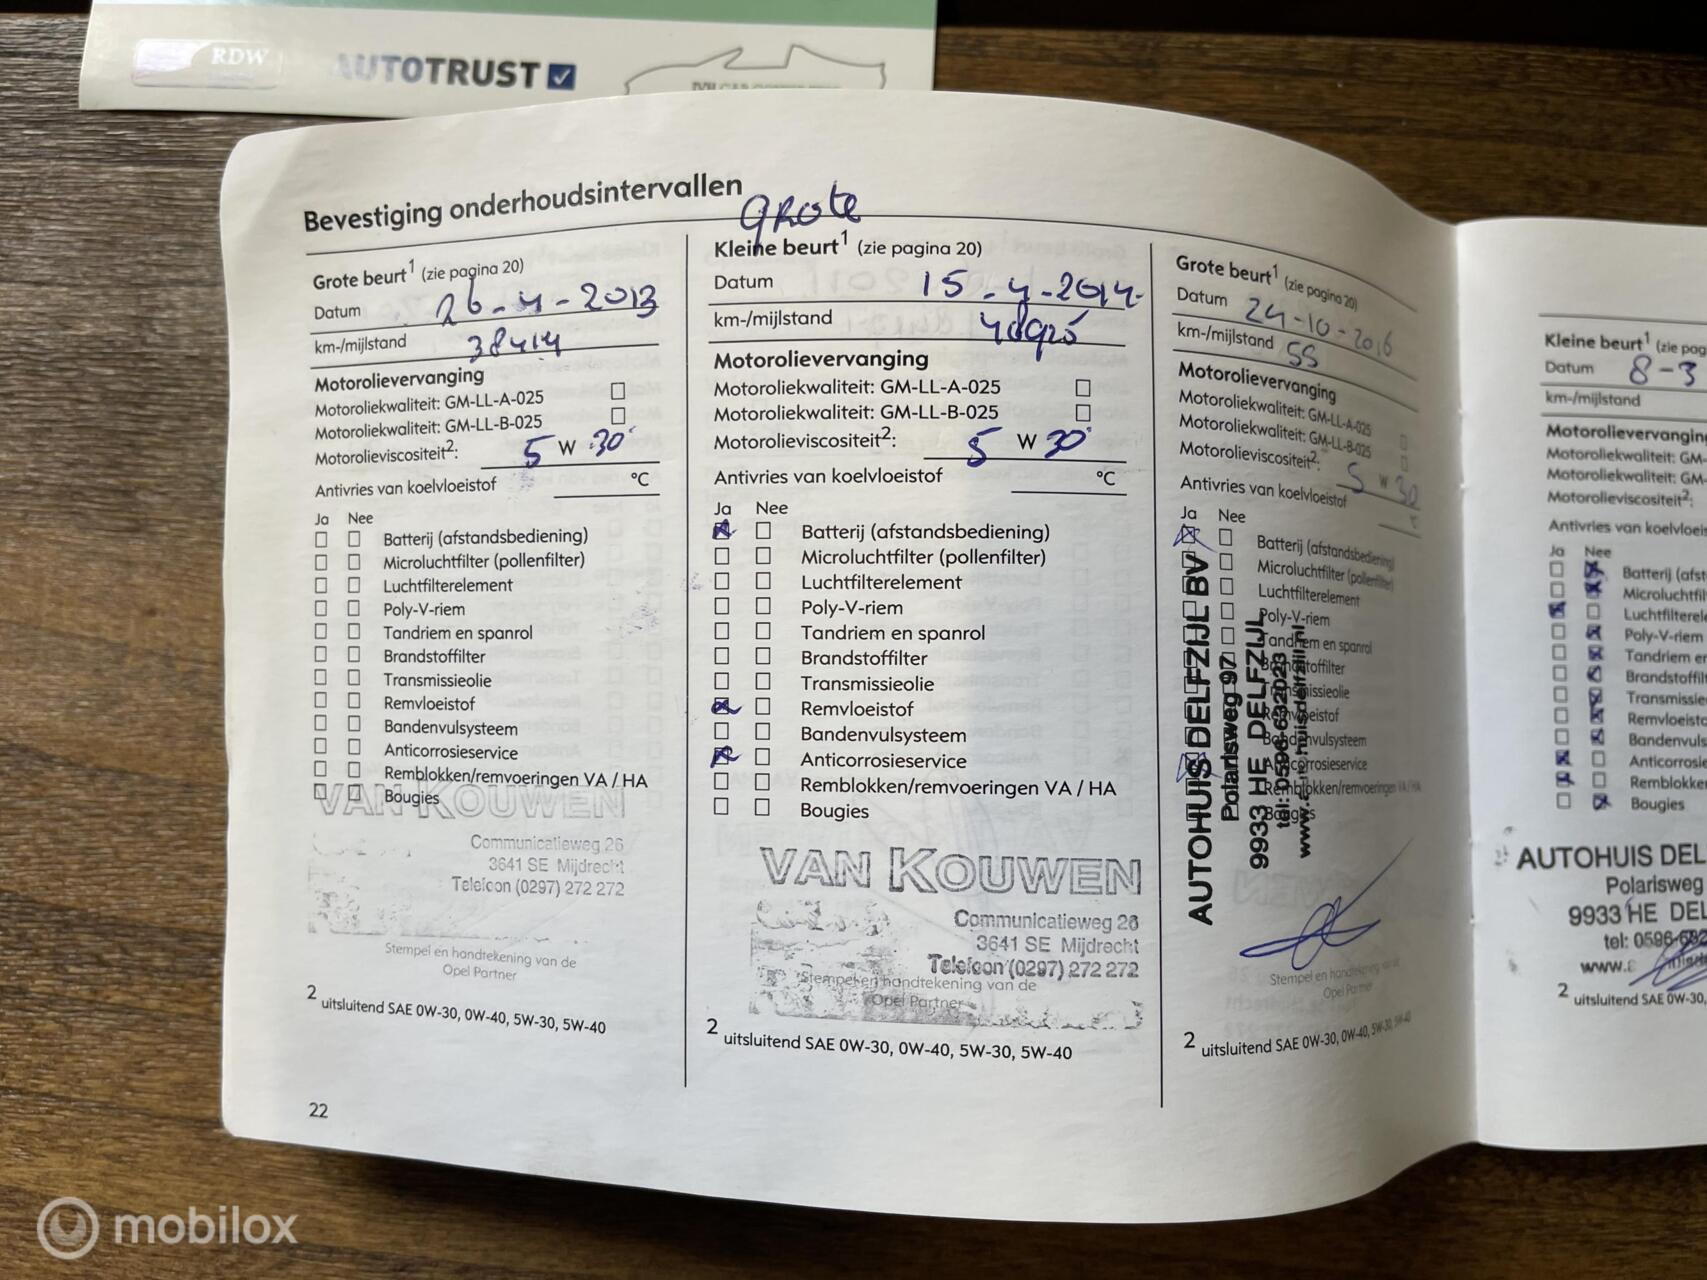 RDW
AUTOTRUST
Bevestiging onderhoudsintervallen
Grote beurt1 (zie pagina 20)
Datum 26-4-2013
km-/mijlstand 38414
Motorolievervanging
Motoroliekwaliteit: GM-LL-A-025
Motoroliekwaliteit: GM-LL-B-025
Motorolieviscositeit2: 5 W 30
Antivries van koelvloeistof °C
Ja Nee
Batterij (afstandsbediening)
Microluchtfilter (pollenfilter)
Luchtfilterelement
Poly-V-riem
Tandriem en spanrol
Brandstoffilter
Transmissieolie
Remvloeistof
Bandenvulsysteem
Anticorrosieservice
Remblokken/remvoeringen VA / HA
Bougies
VAN KOUWEN
Communicatieweg 26
3641 SE Mijdrecht
Telefoon (0297) 272 272
Stempel en handtekening van de
Opel Partner
2 uitsluitend SAE 0W-30, 0W-40, 5W-30, 5W-40
22
Grote
Kleine beurt1 (zie pagina 20)
Datum 15-4-2014
km-/mijlstand
Motorolievervanging
Motoroliekwaliteit: GM-LL-A-025
Motoroliekwaliteit: GM-LL-B-025
Motorolieviscositeit2: 5 W 30
Antivries van koelvloeistof °C
Ja Nee
Batterij (afstandsbediening)
Microluchtfilter (pollenfilter)
Luchtfilterelement
Poly-V-riem
Tandriem en spanrol
Brandstoffilter
Transmissieolie
Remvloeistof
Bandenvulsysteem
Anticorrosieservice
Remblokken/remvoeringen VA / HA
Bougies
VAN KOUWEN
Communicatieweg 26
3641 SE Mijdrecht
Telefoon (0297) 272 272
Stempel en handtekening van de
Opel Partner
2 uitsluitend SAE 0W-30, 0W-40, 5W-30, 5W-40
Grote beurt1 (zie pagina 20)
Datum 24-10-2016
km-/mijlstand
Motorolievervanging
Motoroliekwaliteit: GM-LL-A-025
Motoroliekwaliteit: GM-LL-B-025
Motorolieviscositeit2: 5 W 30
Antivries van koelvloeistof °C
Ja Nee
Batterij (afstandsbediening)
Microluchtfilter (pollenfilter)
Luchtfilterelement
Poly-V-riem
Tandriem en spanrol
Brandstoffilter
Transmissieolie
Remvloeistof
Bandenvulsysteem
Anticorrosieservice
Remblokken/remvoeringen VA / HA
Bougies
AUTOHUIS DELFZIJL BV
Polarisweg 97
9933 HE DELFZIJL
tel: 0596-632023
Stempel en handtekening van de
Opel Partner
2 uitsluitend SAE 0W-30, 0W-40, 5W-30, 5W-40
Kleine beurt1 (zie pag
Datum 8-3
km-/mijlstand
Motorolievervanging
Motoroliekwaliteit: GM-
Motoroliekwaliteit: GM-
Motorolieviscositeit2:
Antivries van koelvloeis
Ja Nee
Batterij (afst
Microluchtfil
Luchtfilterele
Poly-V-riem
Tandriem en
Brandstoffilt
Transmissie
Remvloeisto
Bandenvuls
Anticorrosie
Remblokke
Bougies
AUTOHUIS DEL
Polarisweg
9933 HE DEL
tel: 0596-
www.
2 uitsluitend SAE 0W-30,
mobilox